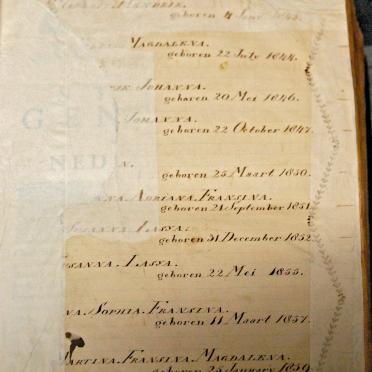 HENDRIK.
geboren 4 Juny 1843.
MAGDALENA.
geboren 22 July 1844.
JOHANNA.
geboren 20 Mei 1846.
JOHANNA.
geboren 22 October 1847.
GEN
NED N.
geboren 25 Maart 1850.
NNA. ADRIANA. FRANSINA.
geboren 21 September 1851
SANNA. LASYA.
geboren 31 December 1852
SANNA. LASYA.
geboren 22 Mei 1855.
NA. SOPHIA. FRANSINA.
geboren 11 Maart 1857.
MARTINA. FRANSINA. MAGDALENA.
geboren 25 January 1859